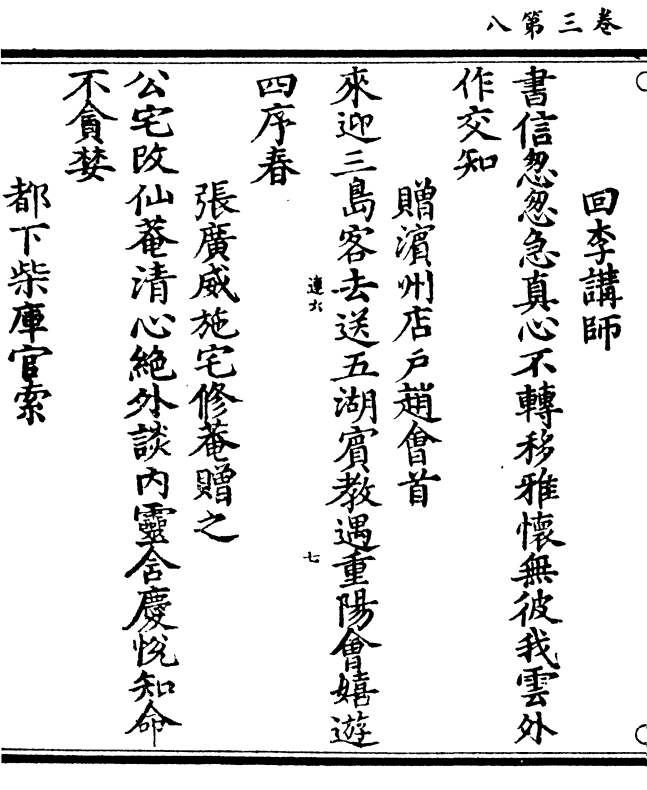 卷三第八
回李講師
書信怱怱急真心不轉移雅懷無彼我雲外
作交知
贈濱州店戶趙會首
來迎三島客去送五湖賓教遇重陽會嬉遊
四序春
張廣威施宅修菴贈之
公宅改仙菴清心絶外談内靈舍慶悅知命
不貪婪
都下柴庫官索
連六
七